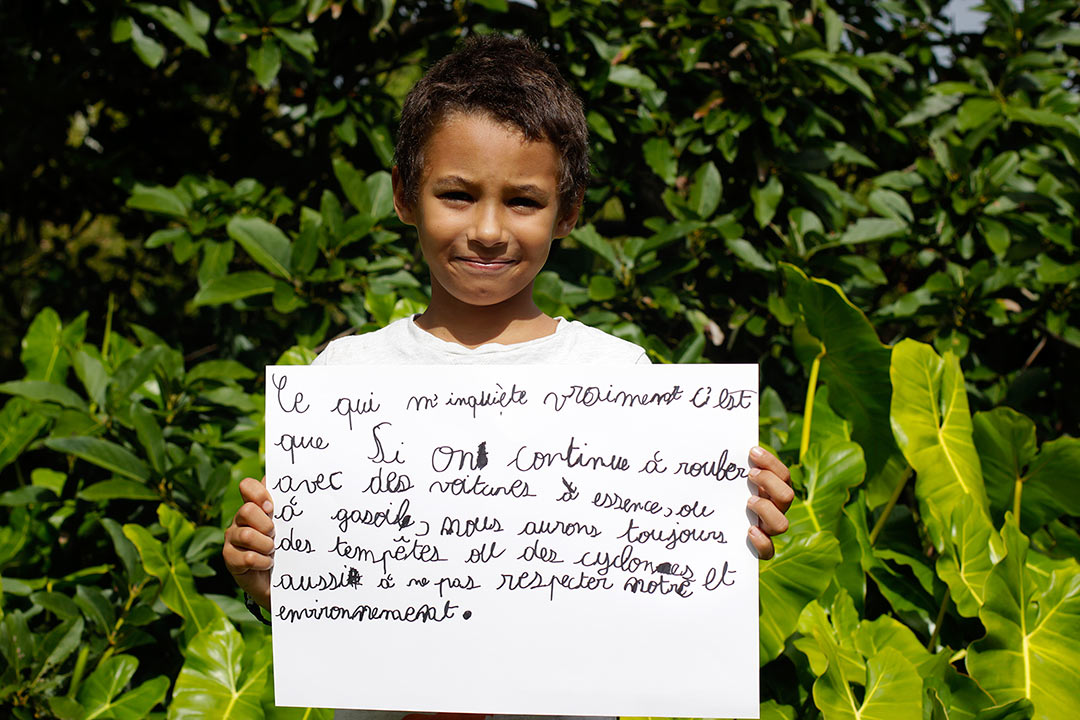 Ce qui m'inquiète vraiment c'est
que si on continue à rouber
avec des voitures à essence, ou
à gasoile, nous aurons toujours
des tempêtes ou des cyclones et
aussi à ne pas respecter notre
environnement.